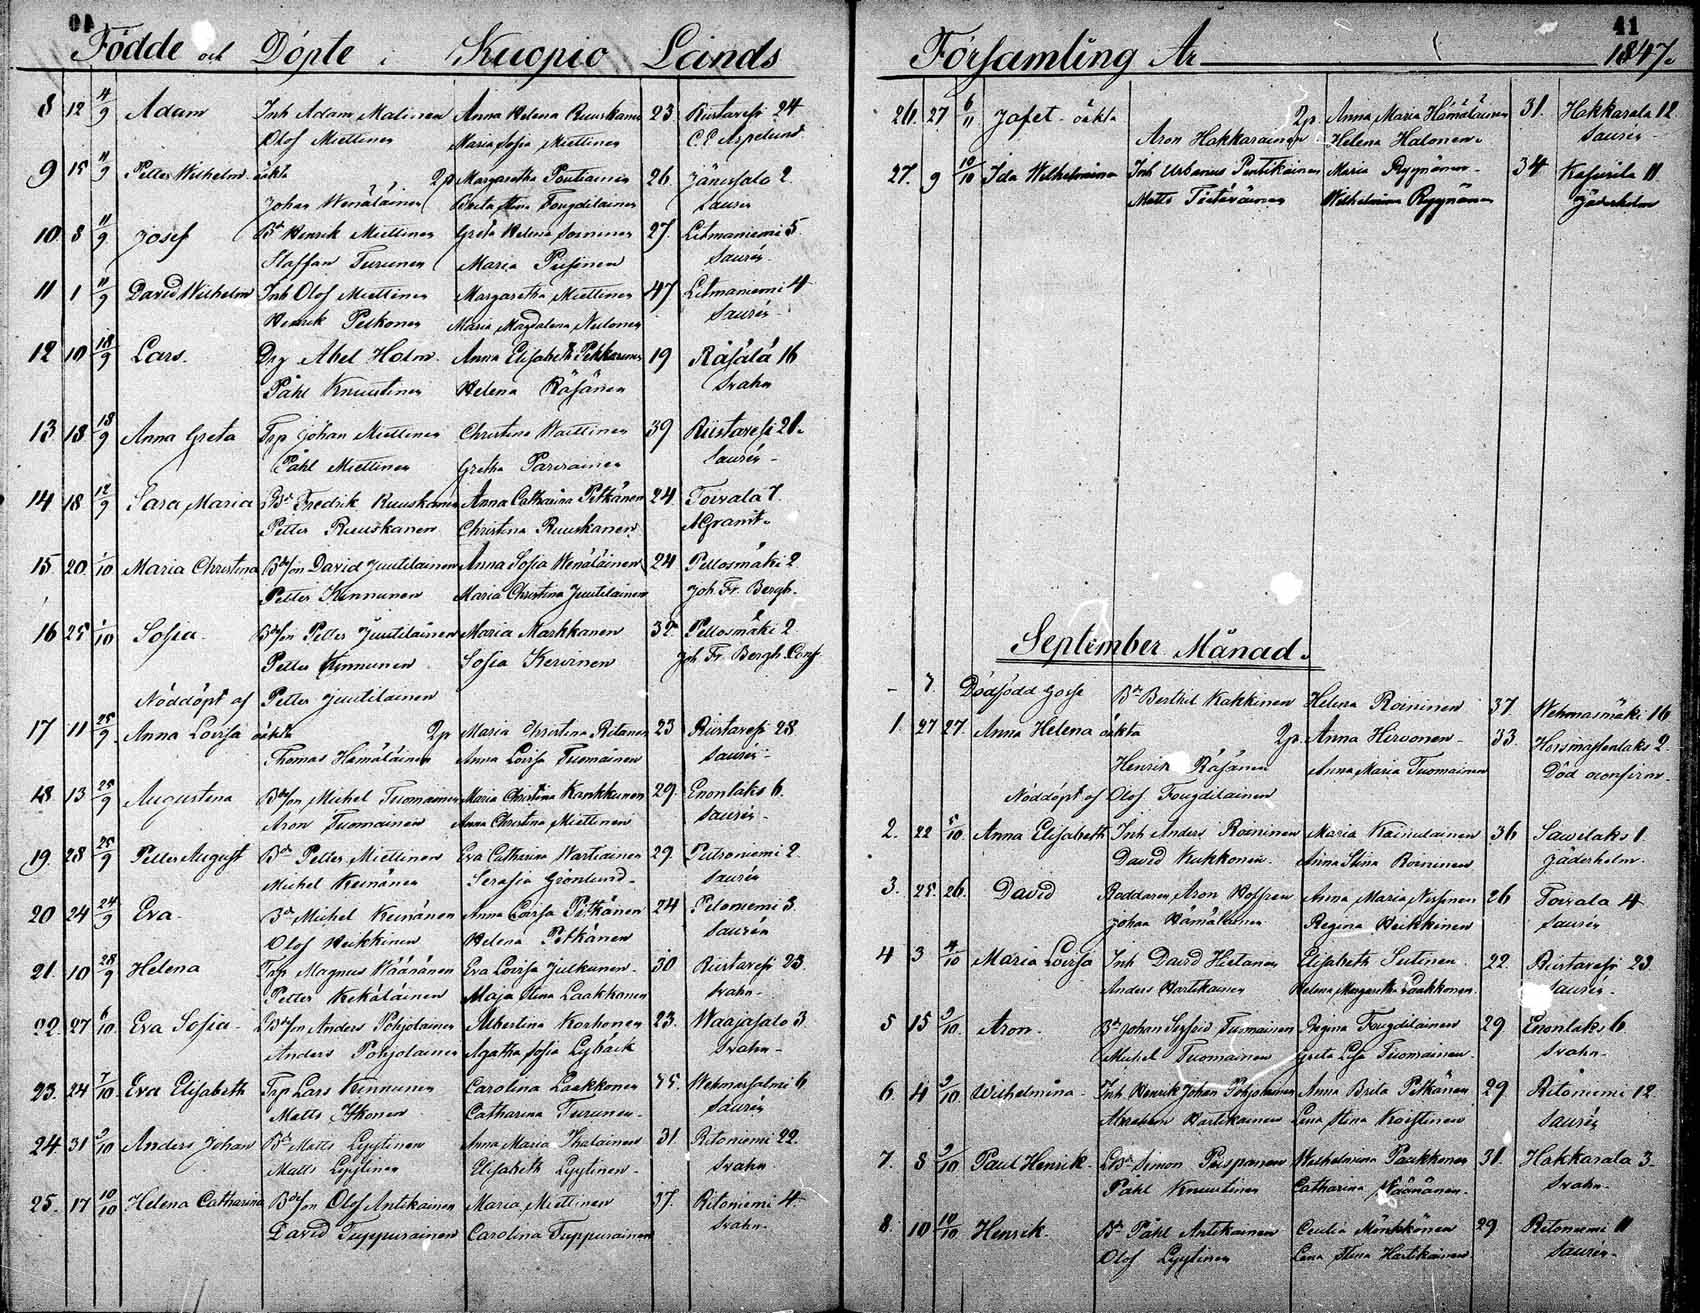 40
Födde och Döpte i Kuopio Lands
8 12 14/9 Adam Inh Adam Malinen Anna Helena Ruuskanen 23 Riistavesi 24
Olof Miettinen Maria Sofia Miettinen C.E. Aspelund
9 15 11/9 Petter Wilhelm oäkta 2p Margaretha Pentiainen 26 Jänissalo 2
Johan Wenäläinen Brita Stina Fougdilainen Saurén
10 8 11/9 Josef Bd Henrik Miettinen Greta Helena Sorninen 27 Litmaniemi 5
Staffan Turunen Maria Pusinen Saurén
11 1 11/9 David Wilhelm Inh Olof Miettinen Margaretha Miettinen 47 Litmaniemi 4
Henrik Pelkonen Maria Magdalena Neilonen Saurén
12 10 18/9 Lars Drg Abel Holm Anna Elisabeth Pekkarinen 19 Räsälä 16
Påhl Knuutinen Helena Räsänen Svahn
13 13 18/9 Anna Greta Trp Johan Miettinen Christina Waittinen 39 Riistavesi 21
Påhl Miettinen Gretha Parviainen Saurén
14 18 12/9 Sara Maria Bd Fredrik Ruuskanen Anna Catharina Pitkänen 24 Toivala 7
Petter Ruuskanen Christina Ruuskanen A Granit
15 20 1/10 Maria Christina Bdson David Juutilainen Anna Sofia Wenäläinen 24 Pellosmäki 2
Petter Kinnunen Maria Christina Juutilainen Joh. Fr. Bergh
16 25 1/10 Sofia Bdson Petter Juutilainen Maria Markkanen 32 Pellosmäki 2
Petter Kinnunen Sofia Kervinen Joh. Fr. Bergh Conf
Nöddöpt af Petter Juutilainen
17 11 25/9 Anna Lovisa oäkta 2p Maria Christina Ritanen 23 Riistavesi 28
Thomas Hämäläinen Anna Lovisa Tuomainen Saurén
18 13 25/9 Augustina Bdson Michel Tuomainen Maria Christina Kankkunen 29 Enonlaks 6
Aron Tuomainen Anna Christina Miettinen Saurén
19 23 25/9 Petter August Bd Petter Miettinen Eva Catharina Wartiainen 29 Putroniemi 2
Michel Keinänen Serafia Grönlund Saurén
20 24 24/9 Eva Bd Michel Keinänen Anna Lovisa Pitkänen 24 Pelonemi 3
Olof Heikkinen Helena Pitkänen Saurén
21 10 28/9 Helena Trp Magnus Väänänen Eva Lovisa Julkunen 30 Riistavesi 23
Petter Kekäläinen Maja Stina Laakkonen Svahn
22 27 6/10 Eva Sofia Bdson Anders Pohjolainen Albertina Korhonen 23 Waajasalo 3
Anders Pohjolainen Agatha Sofia Lybäck Svahn
23 24 7/10 Eva Elisabeth Trp Lars Kinnunen Carolina Laakkonen 45 Wehmersalmi 6
Matts Ikonen Catharina Turunen Saurén
24 31 9/10 Anders Johan Bd Matts Lyytinen Anna Maria Ihalainen 31 Ritoniemi 22
Matts Lyytinen Elisabeth Lyytinen Svahn
25 17 10/10 Helena Catharina Bdson Olof Antikainen Maria Miettinen 37 Ritoniemi 4
David Tuppurainen Carolina Tuppurainen Svahn
41
Församling År 1847
26 27 6/11 Jafet oäkta 2p Anna Maria Hämäläinen 31 Hakkarala 12
Aron Hakkarainen Helena Halonen Saurén
27 9 10/10 Ida Wilhelmina Inh Urbanus Pentikäinen Maria Ryynänen 34 Kasurila 11
Matts Tietäväinen Wilhelmina Ryynänen Gäderholm
September Månad
7 Dödfödd gosse Bd Berthil Kakkinen Helena Roininen 37 Wehmasmäki 16
1 27 27 Anna Helena oäkta 2p Anna Hirvonen 33 Horsmanlaks 2
Henrik Räsänen Anna Maria Tuomainen Död oconfirm
Nöddöpt af Olof Fougdilainen
2 22 5/10 Anna Elisabeth Inh Anders Roininen Maria Kainulainen 36 Savilaks 1
David Kukkonen Anna Stina Roininen Gäderholm
3 25 26 David Anna Maria Niskanen 26 Toivala 4
Johan Hämäläinen Regina Heikkinen Saurén
4 3 4/10 Maria Lovisa Inh David Hietanen Elisabeth Sutinen 22 Riistavesi 23
Anders Hartikainen Helena Margaretha Laakkonen Saurén
5 15 9/10 Aron Bd Johan Sigfrid Tuomainen Regina Fougdilainen 29 Enonlaks 6
Michel Tuomainen Greta Lisa Tuomainen Svahn
6 4 9/10 Wilhelmina Inh Henrik Johan Pohjolainen Anna Brita Pitkänen 29 Ritoniemi 12
Abraham Hartikainen Lena Stina Kroistinen Saurén
7 8 9/10 Paul Henrik Simon Wilhelmina Paukkonen 31 Hakkarala 3
Påhl Knuutinen Catharina Väänänen Svahn
8 10 10/10 Henrik Bd Påhl Antikainen Cecilia Mönkkönen 29 Ritoniemi 11
Olof Lyytinen Lena Stina Hartikainen Saurén